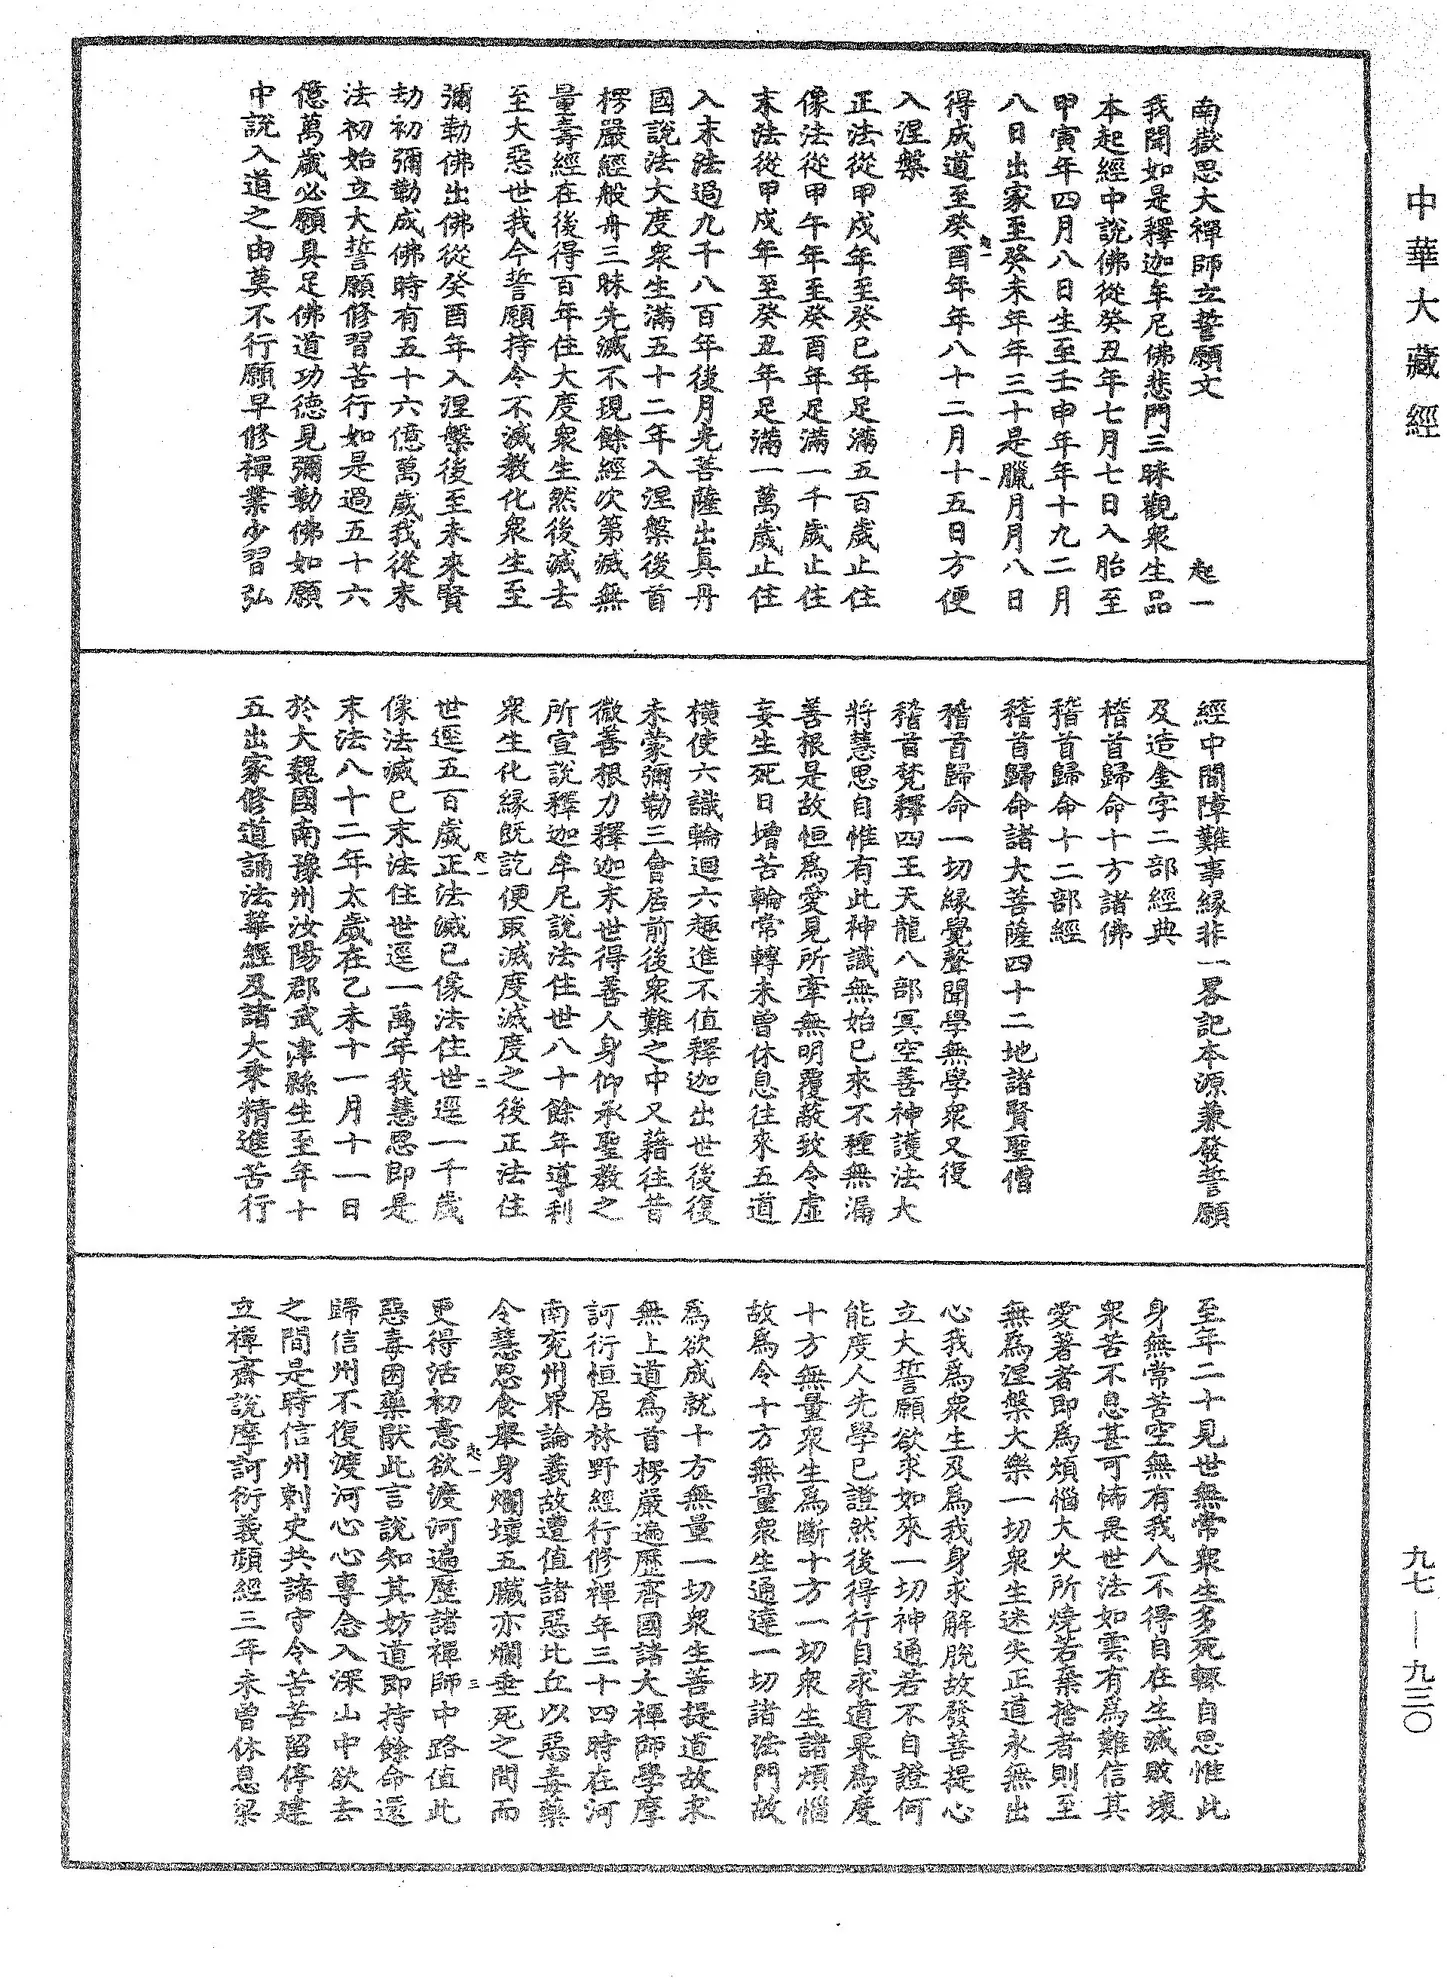 中華大藏經
南嶽思大禪師立誓願文 起一
我聞如是釋迦牟尼佛悲門三昧觀衆生品
本起經中說佛從癸丑年七月七日入胎至
甲寅年四月八日生至壬申年年十九二月
八日出家至癸未年年三十是臘月月八日
得成道至癸酉年年八十二月十五日方便
入涅槃
正法從甲戌年至癸巳年足滿五百歲止住
像法從甲午年至癸酉年足滿一千歲止住
末法從甲戌年至癸丑年足滿一萬歲止住
入末法過九千八百年後月光菩薩出真丹
國說法大度衆生滿五十二年入涅槃後首
楞嚴經般舟三昧先滅不現餘經次第滅無
量壽經在後得百年住大度衆生然後滅去
至大惡世我今誓願持令不滅教化衆生至
彌勒佛出佛從癸酉年入涅槃後至未來賢
劫初彌勒成佛時有五十六億萬歲我從末
法初始立大誓願修習苦行如是過五十六
億萬歲必願具足佛道功德見彌勒佛如願
中說入道之由莫不行願早修禪業少習弘
經中間障難事緣非一畧記本源兼發誓願
及造金字二部經典
稽首歸命十方諸佛
稽首歸命十二部經
稽首歸命諸大菩薩四十二地諸賢聖僧
稽首歸命一切緣覺聲聞學無學衆又復
稽首梵釋四王天龍八部冥空善神護法大
將慧思自惟有此神識無始已來不種無漏
善根是故恒爲愛見所牽無明覆蔽致令虛
妄生死日增苦輪常轉未曾休息往來五道
橫使六識輪迴六趣進不值釋迦出世後復
未蒙彌勒三會居前後衆難之中又藉往昔
微善根力釋迦末世得善人身仰承聖教之
所宣說釋迦牟尼說法住世八十餘年導利
衆生化緣既訖便取滅度滅度之後正法住
世逕五百歲正法滅已像法住世逕一千歲
像法滅已末法住世逕一萬年我慧思即是
末法八十二年太歲在乙未十一月十一日
於大魏國南豫州汝陽郡武津縣生至年十
五出家修道誦法華經及諸大乘精進苦行
至年二十見世無常衆生多死輒自思惟此
身無常苦空無有我人不得自在生滅敗壞
衆苦不息甚可怖畏世法如雲有爲難信其
愛著者即爲煩惱大火所燒若棄捨者則至
無爲涅槃大樂一切衆生迷失正道永無出
心我爲衆生及爲我身求解脫故發菩提心
立大誓願欲求如來一切神通若不自證何
能度人先學已證然後得行自求道果爲度
十方無量衆生爲斷十方一切衆生諸煩惱
故爲令十方無量衆生通達一切諸法門故
爲欲成就十方無量一切衆生菩提道故求
無上道爲首楞嚴遍歷齊國諸大禪師學摩
訶衍恒居林野經行修禪年三十四時在河
南兗州界論義故遭值諸惡比丘以惡毒藥
令慧思食舉身爛壞五臟亦爛垂死之間而
更得活初意欲渡河遍歷諸禪師中路值此
惡毒困藥厭此言說知其妨道即持餘命還
歸信州不復渡河心心專念入深山中欲去
之間是時信州刺史共諸守令苦苦留停建
立禪齋說摩訶衍義頻經三年未曾休息梁
九七—九三〇